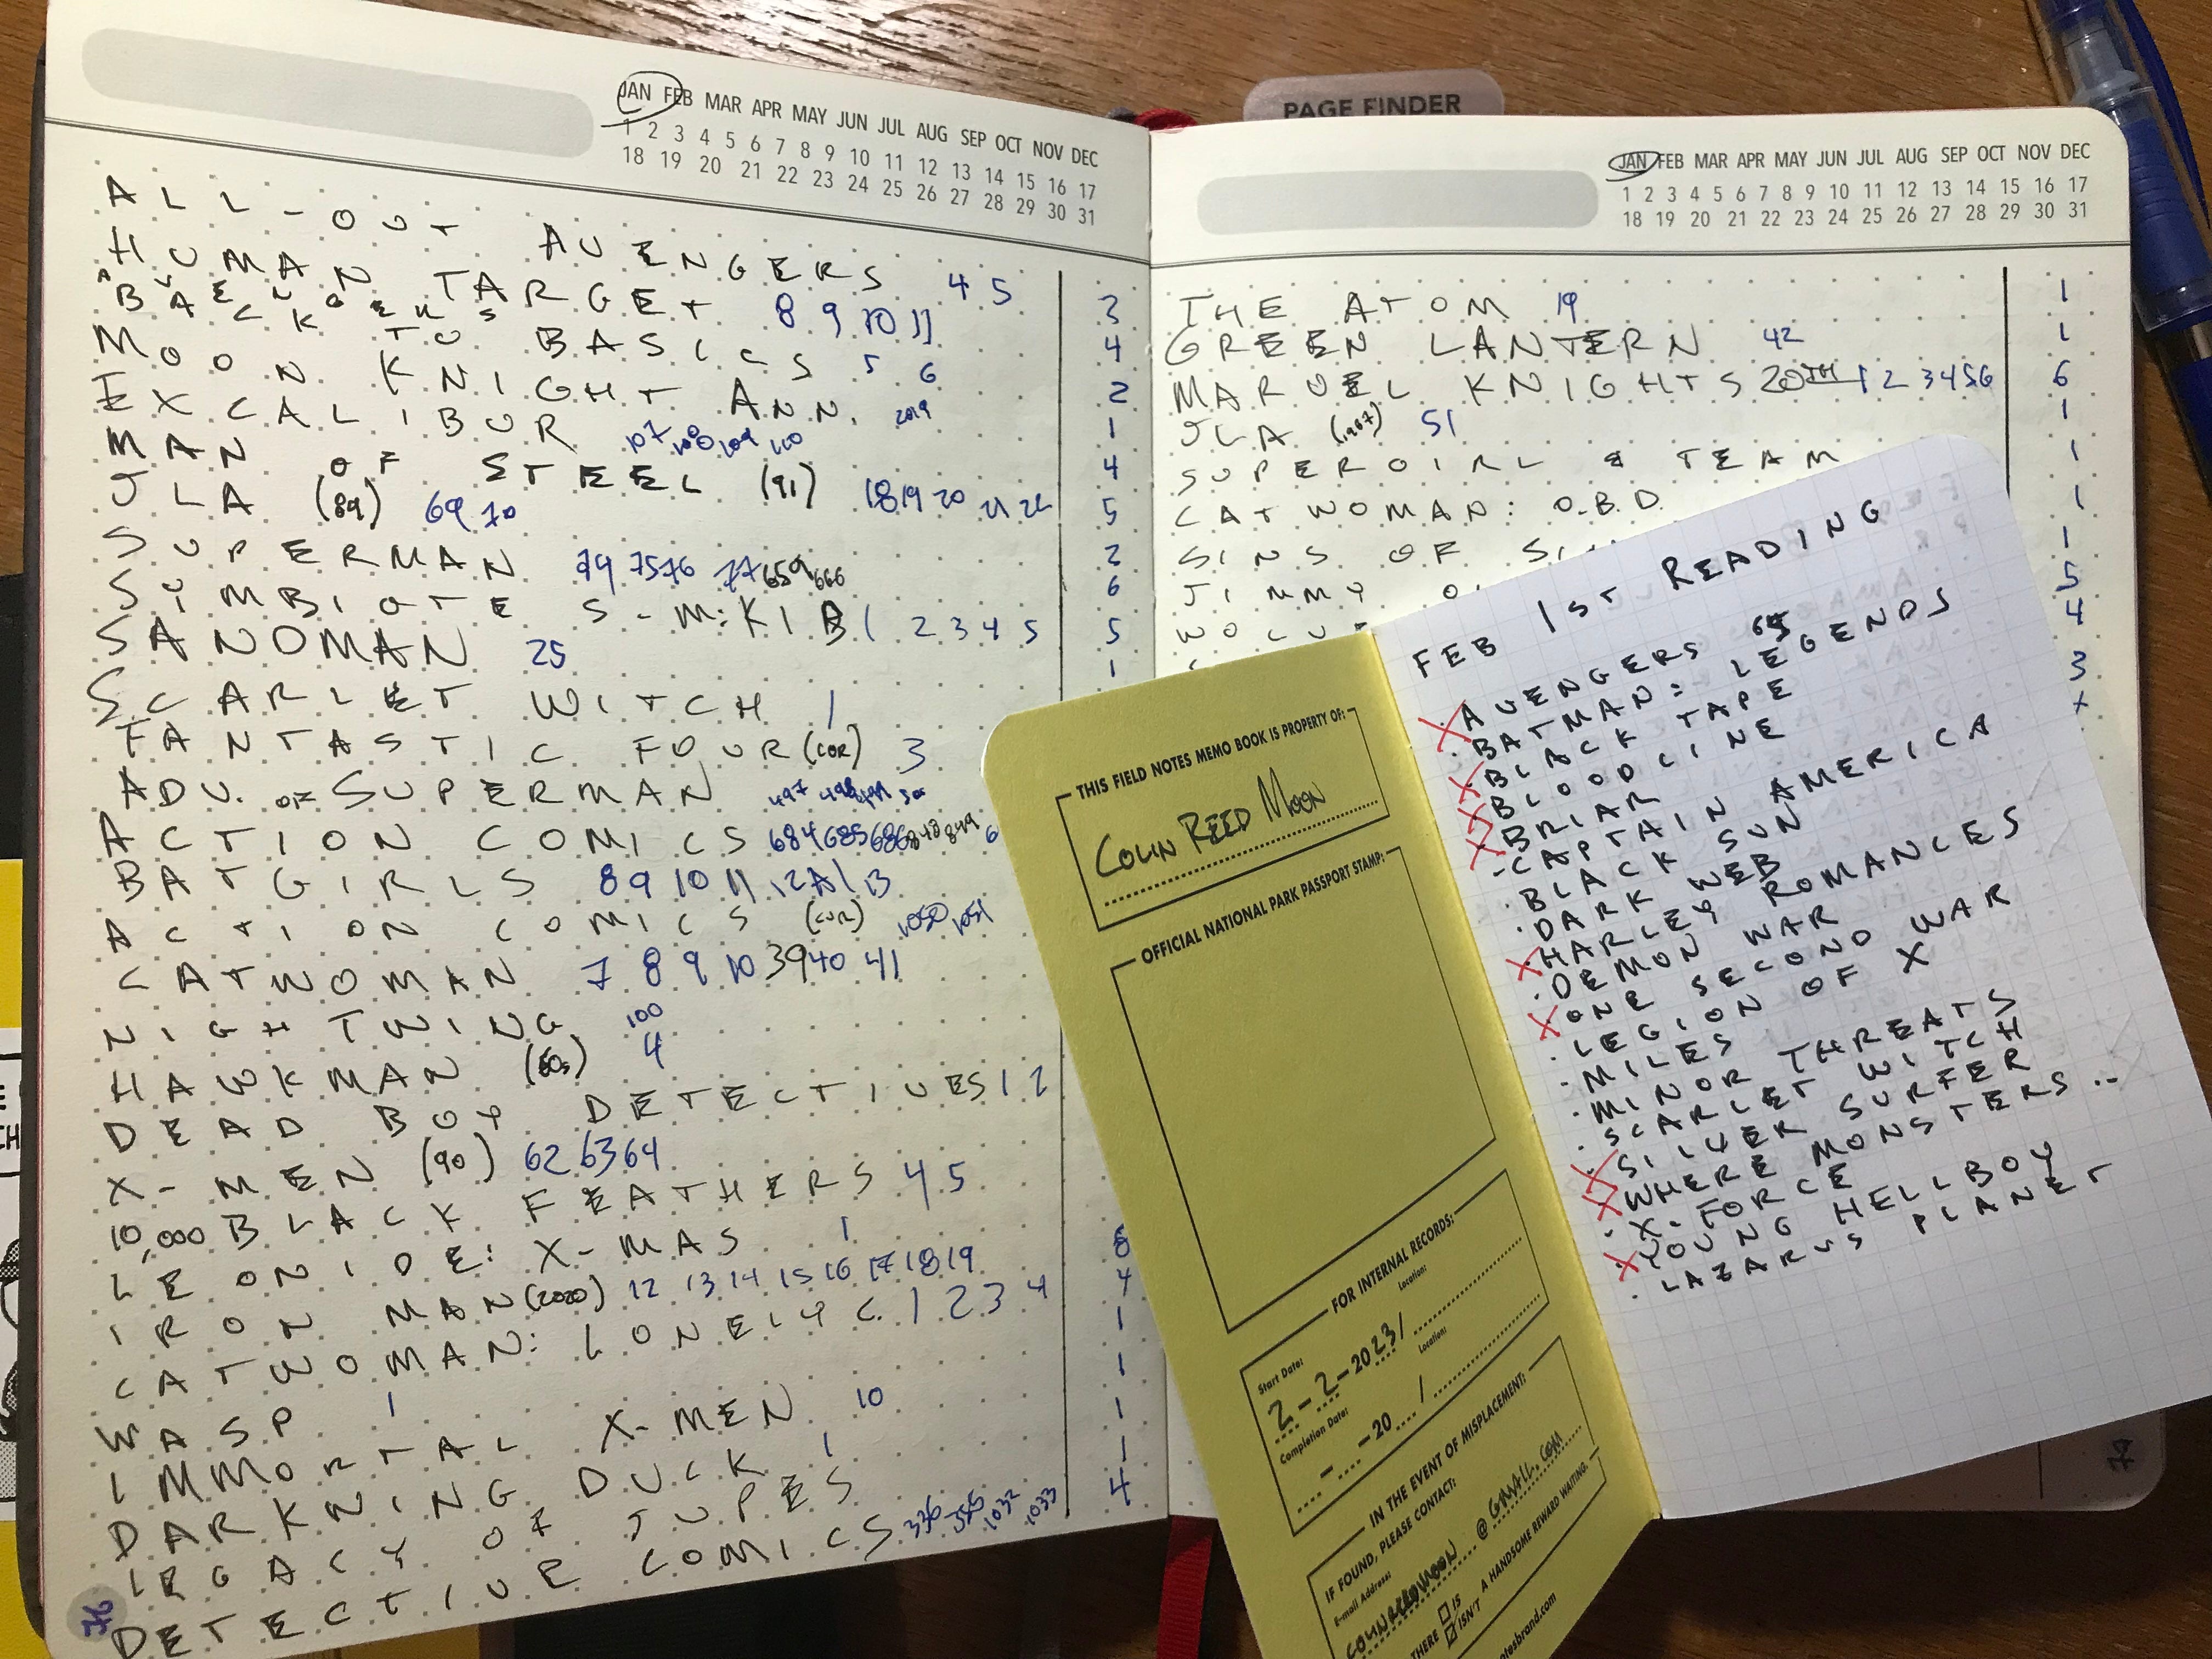 JAN FEB MAR APR MAY JUN JUL AUG SEP OCT NOV DEC
1 2 3 4 5 6 7 8 9 10 11 12 13 14 15 16 17
18 19 20 21 22 23 24 25 26 27 28 29 30 31
ALL-OUT AVENGERS 4 5
HUMAN TARGET 8 9 10 11
BACK TO BASICS 5 6
MOON KNIGHT ANN. 2019
EXCALIBUR 107 108 109 110
MAN OF STEEL (91) 18 19 20 21 22
JLA (89) 69 70
SUPERMAN 74 75 76 77 659 666
SYMBIOTE S-M: KIB 1 2 3 4 5
SANDMAN 25
SCARLET WITCH 1
FANTASTIC FOUR (CUR) 3
ADV. OF SUPERMAN 497 498 499 500
ACTION COMICS 684 685 686 848 849 6
BATGIRLS 8 9 10 11 12 A1 13
ACTION COMICS (CUR) 1050 1051
CATWOMAN 7 8 9 10 39 40 41
NIGHTWING 100
HAWKMAN (60s) 4
DEAD BOY DETECTIVES 1 2
X-MEN (90) 62 63 64
10,000 BLACK FEATHERS 4 5
LEONIDE: X-MAS 1
IRON MAN (2020) 12 13 14 15 16 17 18 19
CATWOMAN: LONELY C. 1 2 3 4
WASP 1
IMMORTAL X-MEN 10
DARKWING DUCK 1
LEGACY OF JUPES
DETECTIVE COMICS 336 1032 1033
3
4
2
1
4
5
2
6
5
1
8
4
1
1
1
1
4
76
PAGE FINDER
JAN FEB MAR APR MAY JUN JUL AUG SEP OCT NOV DEC
1 2 3 4 5 6 7 8 9 10 11 12 13 14 15 16 17
18 19 20 21 22 23 24 25 26 27 28 29 30 31
THE ATOM 19 1
GREEN LANTERN 42 1
MARVEL KNIGHTS 20TH 1 2 3 4 5 6 6
JLA 51 1
SUPERGIRL & TEAM 1
CATWOMAN: O.B.D. 1
SINS OF 1
JIMMY 5
4
3
THIS FIELD NOTES MEMO BOOK IS PROPERTY OF:
COLIN REED MOON
OFFICIAL NATIONAL PARK PASSPORT STAMP:
FOR INTERNAL RECORDS:
Start Date: Location:
2-2-2023/
Completion Date: Location:
- -20 /
IN THE EVENT OF MISPLACEMENT:
IF FOUND, PLEASE CONTACT:
E-mail Address:
COLINREEDMOON @ GMAIL.COM
THERE IS ISN'T A HANDSOME REWARD WAITING.
otesbrand.com
FEB 1ST READING
X AVENGERS 64
. BATMAN: LEGENDS
X BLACK TAPE
X BLOODLINE
X BRIAR
- CAPTAIN AMERICA
. BLACK SUN
. DARK WEB
X HARLEY ROMANCES
. DEMON WAR
X ONE SECOND WAR
. LEGION OF X
. MILES
. MINOR THREATS
. SCARLET WITCH
X SILVER SURFER
X WHERE MONSTERS..
. X-FORCE
X YOUNG HELLBOY
. LAZARUS PLANET